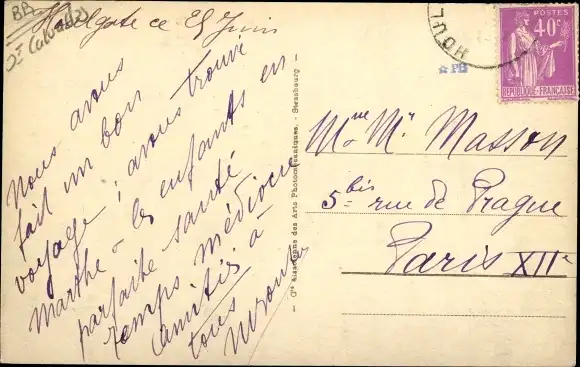 Houlgate ce 25 Juin
Nous avons
fait un bon
voyage ; avons trouvé
Marthe & les enfants en
parfaite santé
temps médiocre
amitiés à
tous
BA
(Calvados)
HOUL
PB
POSTES
40c
REPUBLIQUE-FRANÇAISE
Mme Mr Masson
5 bis rue de Prague
Paris XIIe
- Cie Alsacienne des Arts Photomécaniques. - Strasbourg -